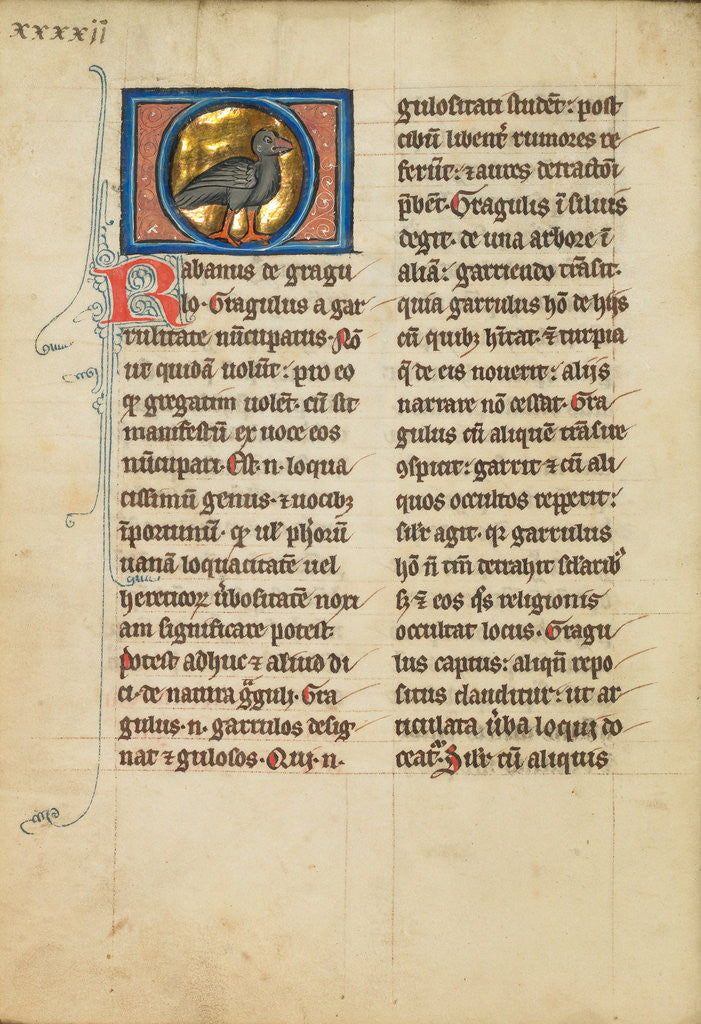 xxxxii
Rabanus de gragu
lo. Gragulus a gar
rulitate nūcupatus. Nō
ut quidā uolūt: pro eo
qꝫ gregatim uolēt. cū sit
manifestū ex uoce eos
nūcupari. Est .n. loqua
cissimū genus. ⁊ uocibꝫ
īportunū. qꝫ ul̓ ph̓orū
uanā loquacitatē uel
hereticoꝝ ūbositatē noxi
am significare potest.
Potest adhuc ⁊ aliud di
ci. de natura gͣguli. Gra
gulus .n. garrulos desig
nat ⁊ gulosos. Qui .n.
gulositati studēt: post
cibū libent̄ rumores re
ferūt: ⁊ aures detractōi
p̄bēt. Gragulis ī siluis
degit. de una arbore ī
aliā: garriendo trāsit.
quia garrulus hō de hijs
cū quibꝫ hītat. ⁊ turpia
q̄ de eis nouerit: alijs
narrare nō cessat. Gra
gulus cū aliquē trāsire
ꝯspicit: garrit ⁊ cū ali
quos occultos repperit:
sil̓r agit. qꝛ garrulus
hō ñ tm̄ detrahit scl̓aribꝫ
sꝫ ⁊ eos q̄s religionis
occultat locus. Gragu
lus captus: aliqñ repo
situs clauditur: ut ar
ticulata ūba loqui do
ceatᷣ. Sil̓r cū aliquis